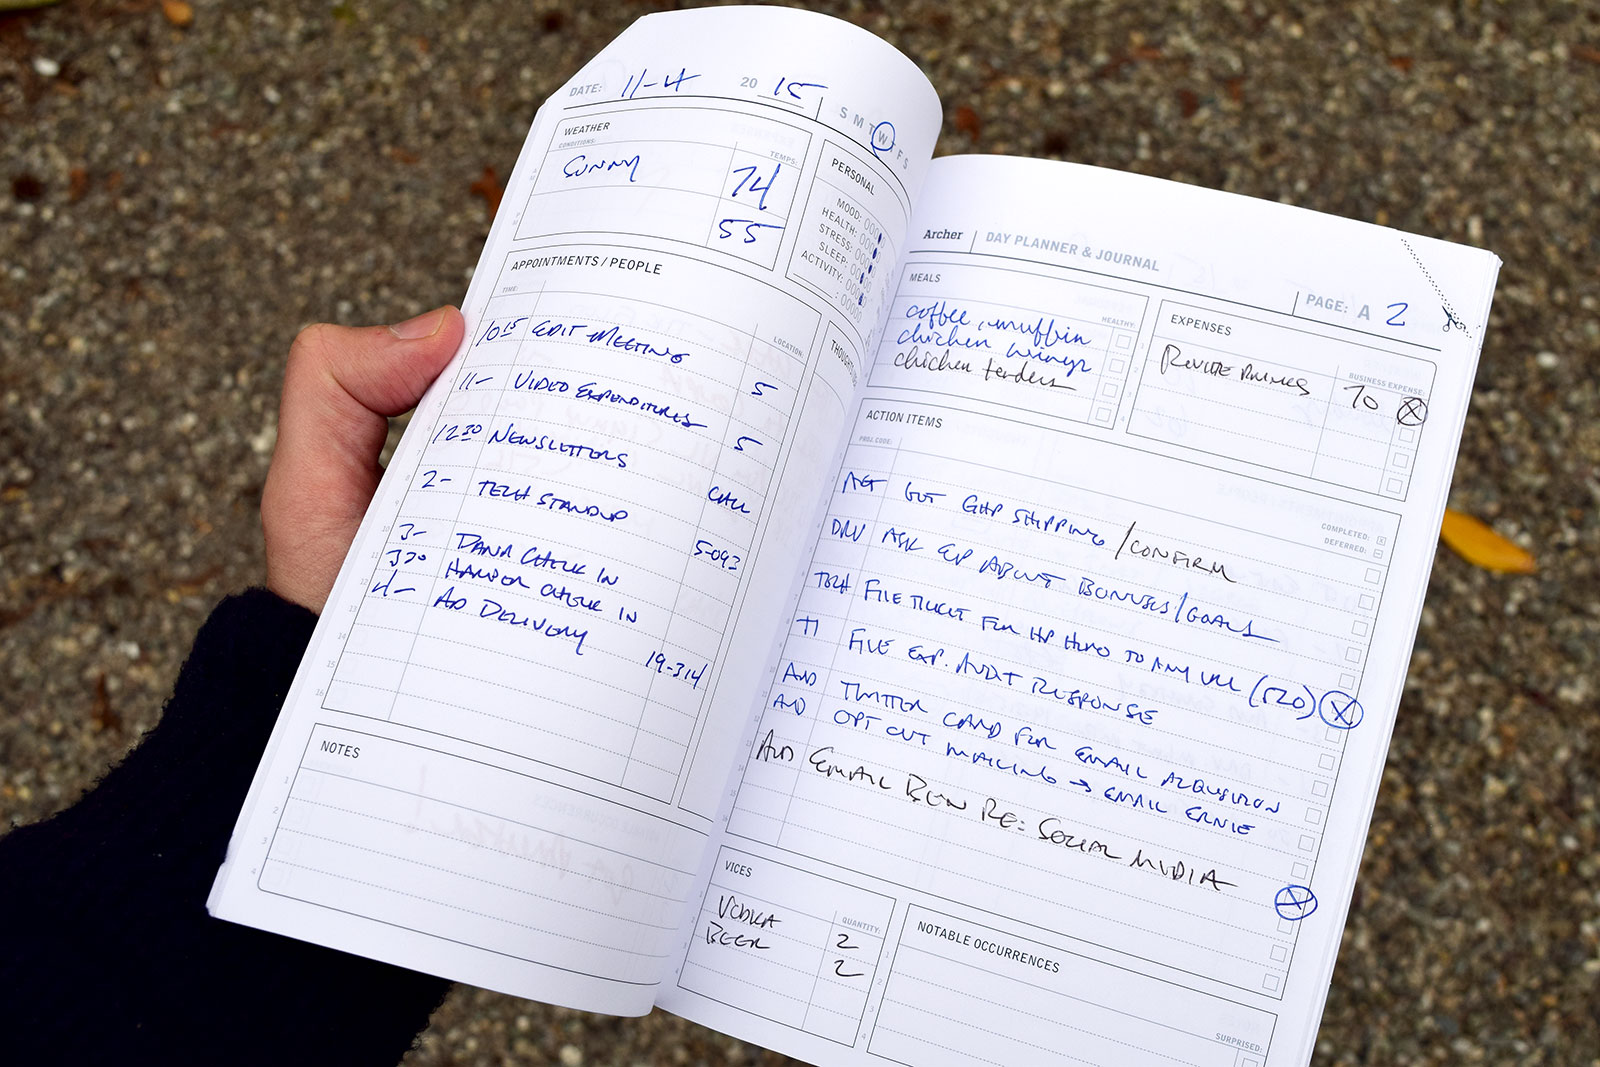 DATE: 11-4 20 15 S M T W T F S
WEATHER
CONDITIONS: TEMPS:
Sunny 74
55
PERSONAL
MOOD:
HEALTH:
STRESS:
SLEEP:
ACTIVITY:
APPOINTMENTS / PEOPLE
TIME: LOCATION:
10 15 EDIT MEETING 5
11- VIDEO EXPENDITURES 5
12 30 NEWSLETTERS CALL
2- TECH STANDUP 5-093
3- DANA CHECK IN
3 30 HARPER CHECK IN
4- AD DELIVERY 19-314
NOTES
Archer DAY PLANNER & JOURNAL
PAGE: A 2
MEALS
HEALTHY:
coffee, muffin
chicken wings
chicken tenders
EXPENSES
BUSINESS EXPENSE:
70
ACTION ITEMS
PROJ. CODE: COMPLETED:
DEFERRED:
GHP SHIPPING / CONFIRM
ASK EP ABOUT BONUSES / GOALS
TECH FILE TICKET FOR HP HERO TO ANY URL (520)
FILE EXP. AUDIT RESPONSE
AUD TWITTER CARD FOR EMAIL ACQUISITION
AUD OPT OUT MAILING → EMAIL ERNIE
AUD EMAIL BEN RE: SOCIAL MEDIA
VICES
QUANTITY:
VODKA 2
BEER 2
NOTABLE OCCURRENCES
SURPRISED: